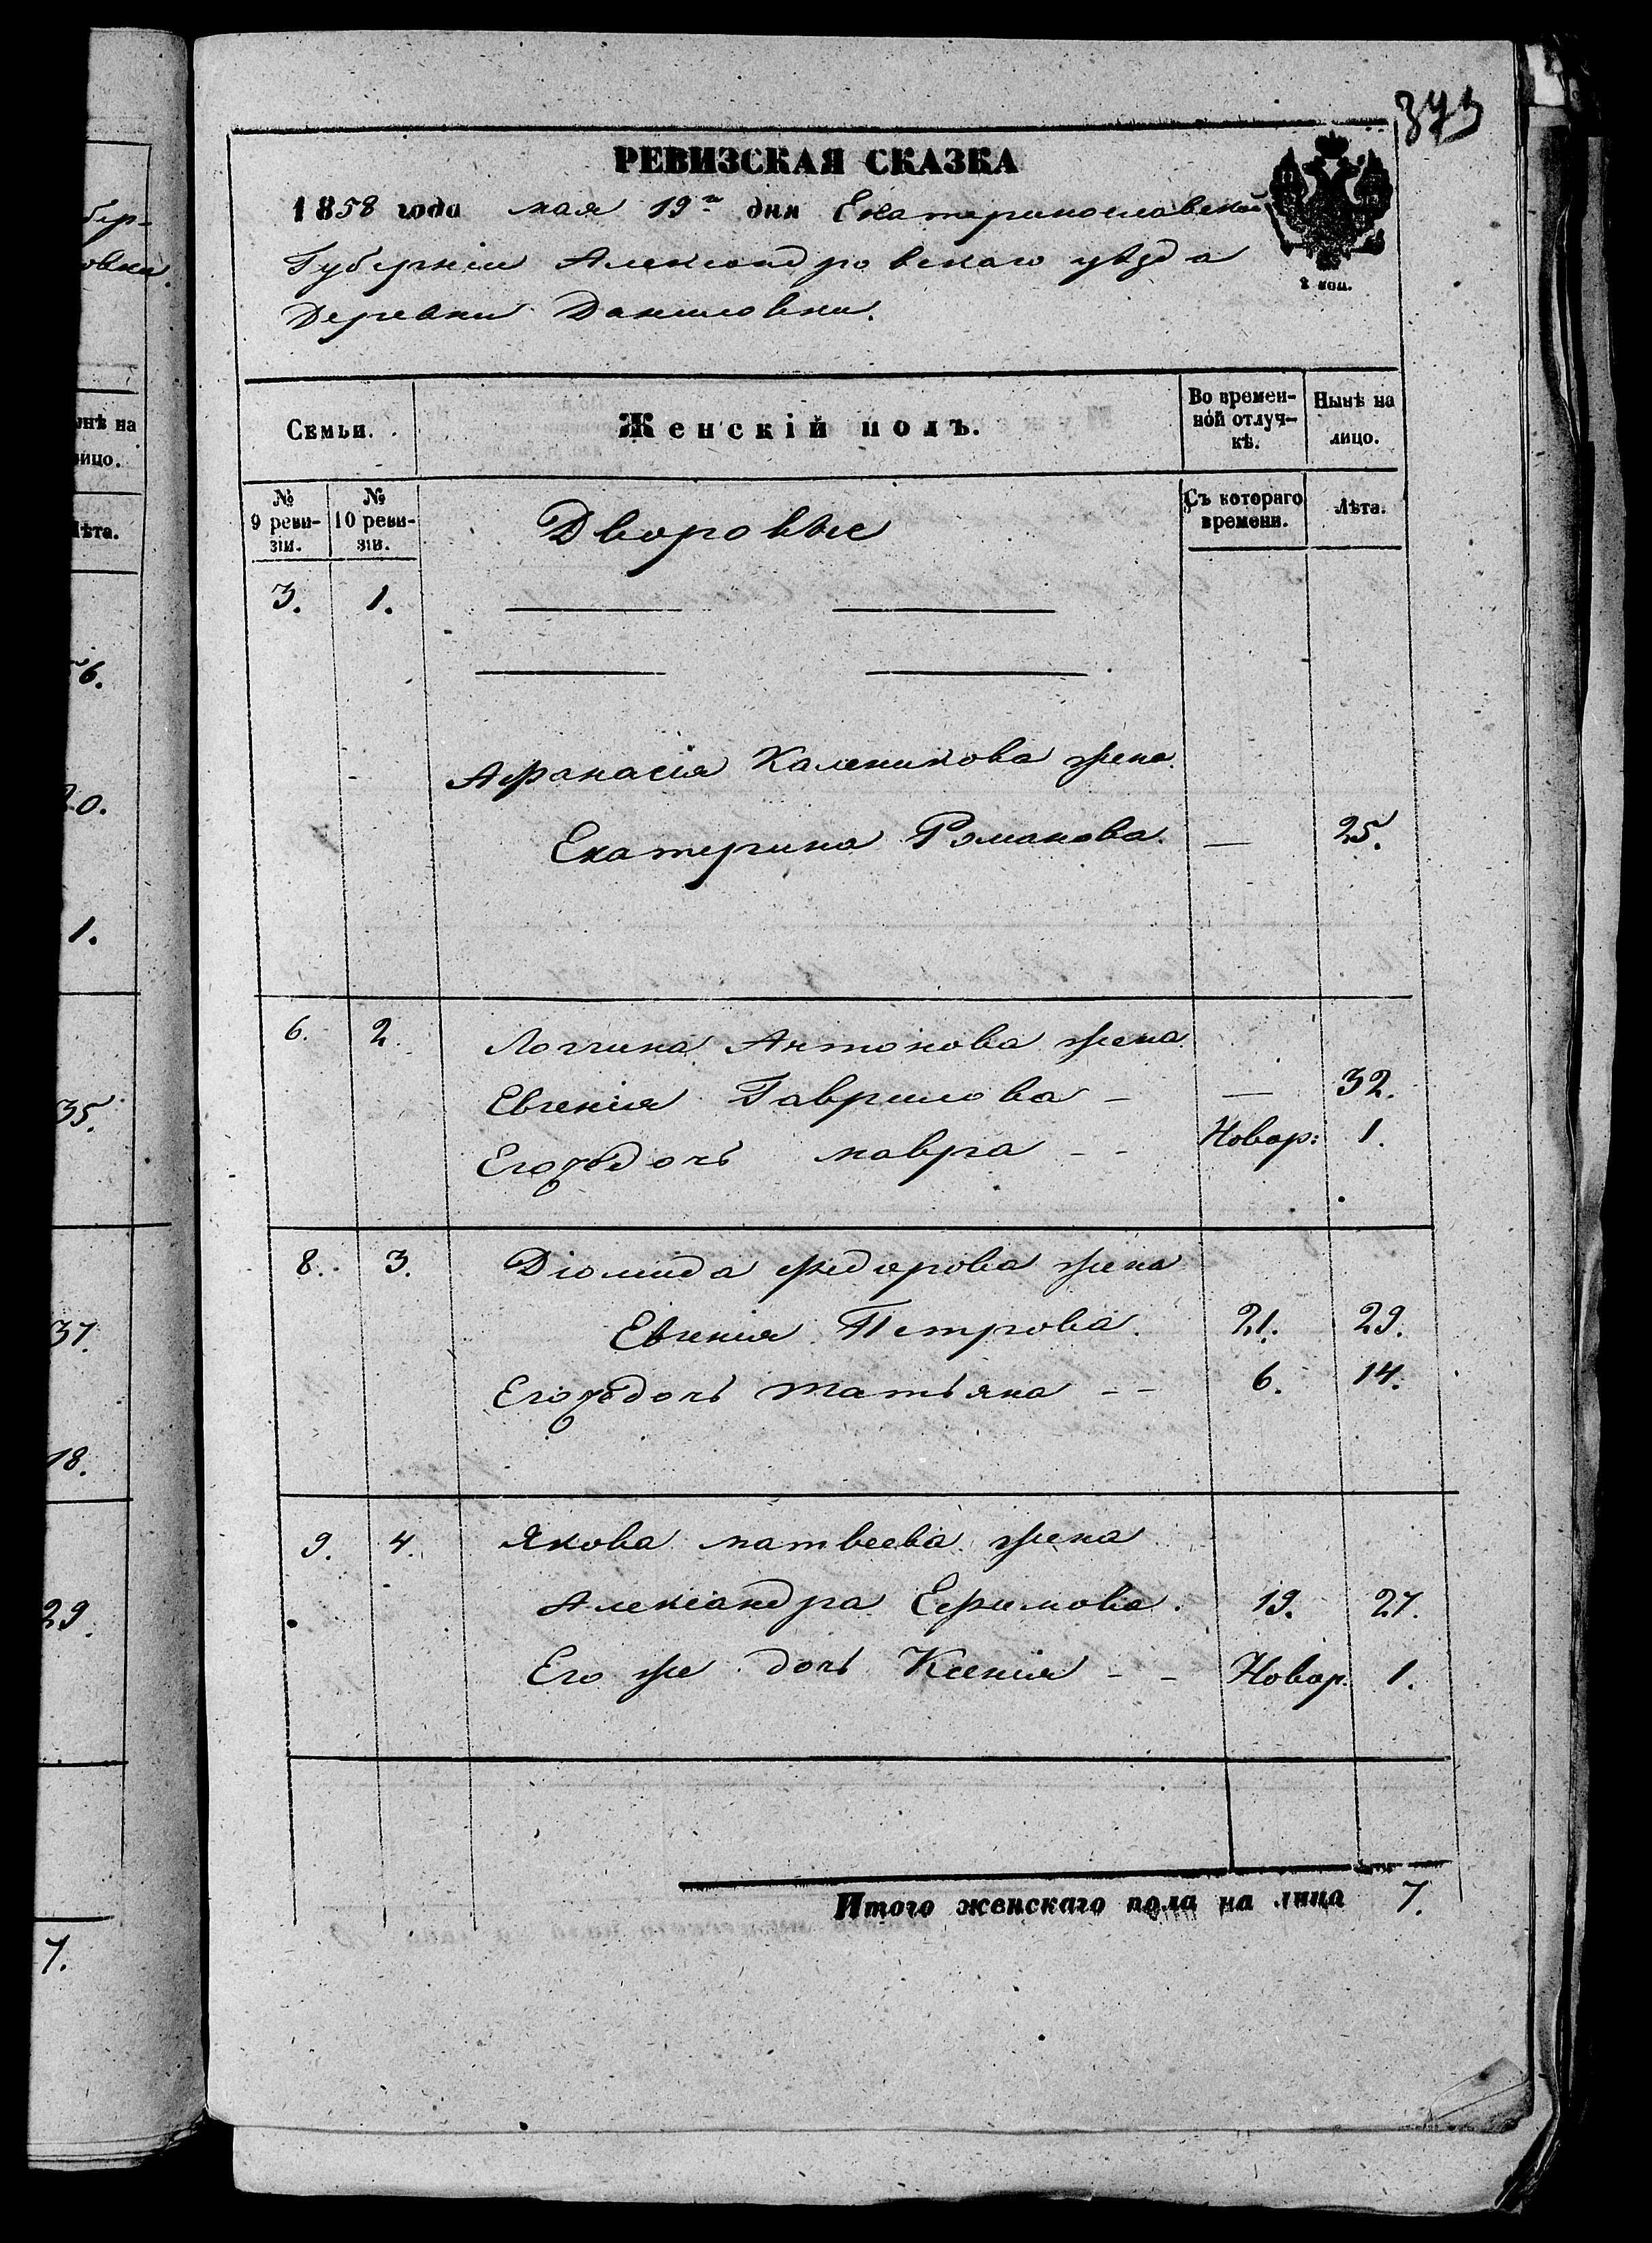 373
РЕВИЗСКАЯ СКАЗКА
1858 года мая 19го дня Екатеринославской
Губерніи Александровскаго уѣзда
Деревни Даниловки.
2 коп.
Семьи.
Женскій полъ.
Во времен-
ной отлуч-
кѣ.
Нынѣ на
лицо.
№
9 реви-
зіи.
№
10 реви-
зіи.
Дворовые
Съ котораго
времени.
Лѣта.
3. 1.
Афанасія Каленикова жена
Екатерина Романова. — 25.
6. 2. Логгина Антонова жена
Евгенія Гаврилова - — 32.
Егожъ дочь Мавра - - Новор: 1.
8. 3. Діомида Федорова жена
Евгенія Петрова. 21. 29.
Егожъ дочь Татьяна - - 6. 14.
9. 4. Якова Матвеева жена
Александра Ефимова. 19. 27.
Его же дочь Ксенія - - Новор. 1.
Итого женскаго пола на лицо 7.
бер-
овки.
нѣ на
ицо.
Лѣта.
6.
20.
1.
35.
37.
18.
29.
7.